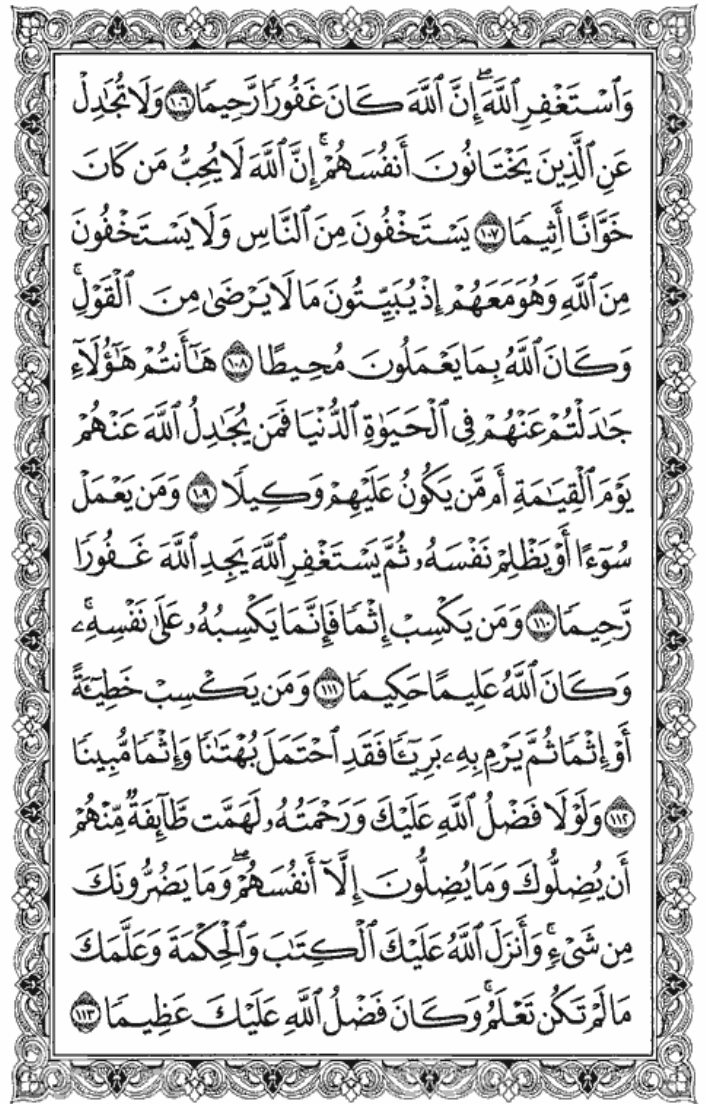 وَٱسْتَغْفِرِ ٱللَّهَۖ إِنَّ ٱللَّهَ كَانَ غَفُورًا رَّحِيمًا ١٠٦ وَلَا تُجَٰدِلْ
عَنِ ٱلَّذِينَ يَخْتَانُونَ أَنفُسَهُمْۚ إِنَّ ٱللَّهَ لَا يُحِبُّ مَن كَانَ
خَوَّانًا أَثِيمًا ١٠٧ يَسْتَخْفُونَ مِنَ ٱلنَّاسِ وَلَا يَسْتَخْفُونَ
مِنَ ٱللَّهِ وَهُوَ مَعَهُمْ إِذْ يُبَيِّتُونَ مَا لَا يَرْضَىٰ مِنَ ٱلْقَوْلِۚ
وَكَانَ ٱللَّهُ بِمَا يَعْمَلُونَ مُحِيطًا ١٠٨ هَٰٓأَنتُمْ هَٰٓؤُلَآءِ
جَٰدَلْتُمْ عَنْهُمْ فِى ٱلْحَيَوٰةِ ٱلدُّنْيَا فَمَن يُجَٰدِلُ ٱللَّهَ عَنْهُمْ
يَوْمَ ٱلْقِيَٰمَةِ أَم مَّن يَكُونُ عَلَيْهِمْ وَكِيلًا ١٠٩ وَمَن يَعْمَلْ
سُوٓءًا أَوْ يَظْلِمْ نَفْسَهُۥ ثُمَّ يَسْتَغْفِرِ ٱللَّهَ يَجِدِ ٱللَّهَ غَفُورًا
رَّحِيمًا ١١٠ وَمَن يَكْسِبْ إِثْمًا فَإِنَّمَا يَكْسِبُهُۥ عَلَىٰ نَفْسِهِۦۚ
وَكَانَ ٱللَّهُ عَلِيمًا حَكِيمًا ١١١ وَمَن يَكْسِبْ خَطِيٓـَٔةً
أَوْ إِثْمًا ثُمَّ يَرْمِ بِهِۦ بَرِيٓـًٔا فَقَدِ ٱحْتَمَلَ بُهْتَٰنًا وَإِثْمًا مُّبِينًا
١١٢ وَلَوْلَا فَضْلُ ٱللَّهِ عَلَيْكَ وَرَحْمَتُهُۥ لَهَمَّت طَّآئِفَةٌ مِّنْهُمْ
أَن يُضِلُّوكَ وَمَا يُضِلُّونَ إِلَّآ أَنفُسَهُمْۖ وَمَا يَضُرُّونَكَ
مِن شَىْءٍۚ وَأَنزَلَ ٱللَّهُ عَلَيْكَ ٱلْكِتَٰبَ وَٱلْحِكْمَةَ وَعَلَّمَكَ
مَا لَمْ تَكُن تَعْلَمُۚ وَكَانَ فَضْلُ ٱللَّهِ عَلَيْكَ عَظِيمًا ١١٣